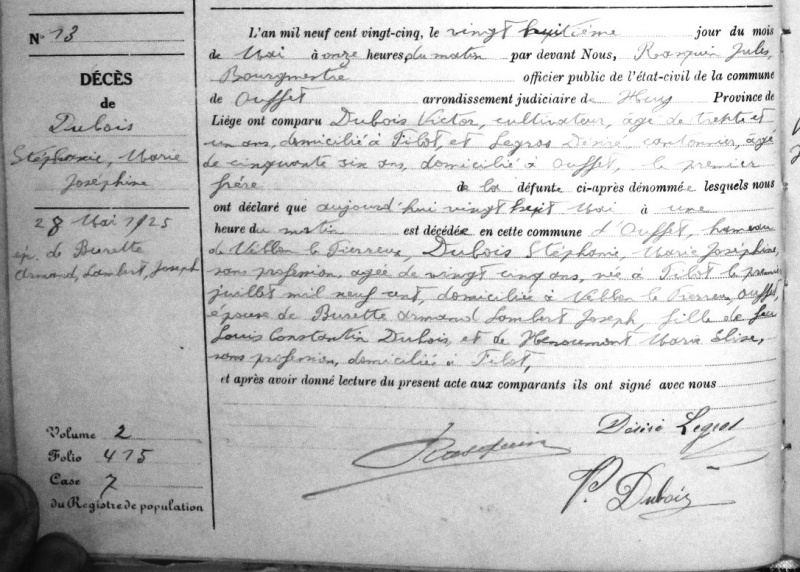 N° 13
DÉCÈS
de
Dubois
Stéphanie, Marie
Joséphine
28 Mai 1925
ép. de Burette
Armand, Lambert, Joseph
Volume 2
Folio 415
Case 7
du Registre de population
L'an mil neuf cent vingt-cinq, le vingt huitième jour du mois
de Mai à onze heures, du matin par devant Nous, Rasquin Jules,
Bourgmestre officier public de l'état-civil de la commune
de Ouffet arrondissement judiciaire de Huy Province de
Liége ont comparu Dubois Victor, cultivateur, âgé de trente et
un ans, domicilié à Filot, et Legros Désiré cantonnier, âgé
de cinquante six ans, domicilié à Ouffet, le premier
frère de la défunte ci-après dénommée lesquels nous
ont déclaré que aujourd'hui vingt huit Mai à une
heure du matin est décédée en cette commune d'Ouffet, hameau
de Vallon le Pierreux, Dubois Stéphanie, Marie Joséphine,
sans profession, agée de vingt cinq ans, née à Filot le premier
juillet mil neuf cent, domiciliée à Vallon le Pierreux, Ouffet,
épouse de Burette Armand Lambert Joseph, fille de feu
Louis Constantin Dubois, et de Henoumont Marie Elise,
sans profession, domiciliée à Filot,
et après avoir donné lecture du present acte aux comparants ils ont signé avec nous
Désiré Legros
Rasquin
V. Dubois